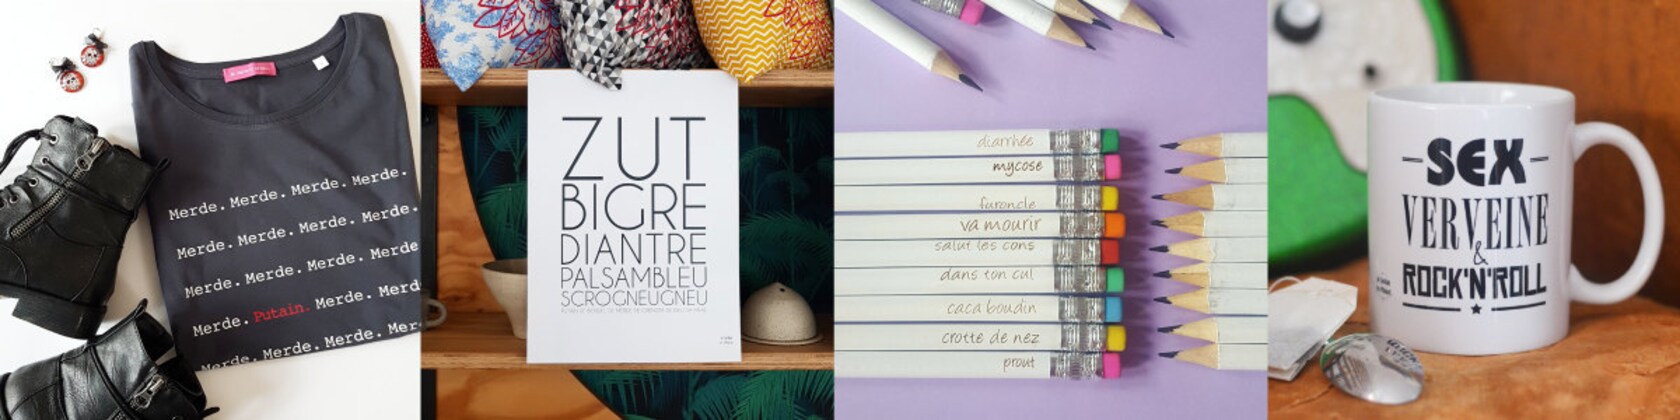 Merde. Merde. Merde. Merde.
Merde. Merde. Merde. Merde.
Merde. Merde. Merde. Merde.
Merde. Putain. Merde. Merde.
Merde. Merde. Merde. Mer
ZUT
BIGRE
DIANTRE
PALSAMBLEU
SCROGNEUGNEU
diarrhée
mycose
furoncle
va mourir
salut les cons
dans ton cul
caca boudin
crotte de nez
prout
SEX
VERVEINE
&
ROCK'N'ROLL